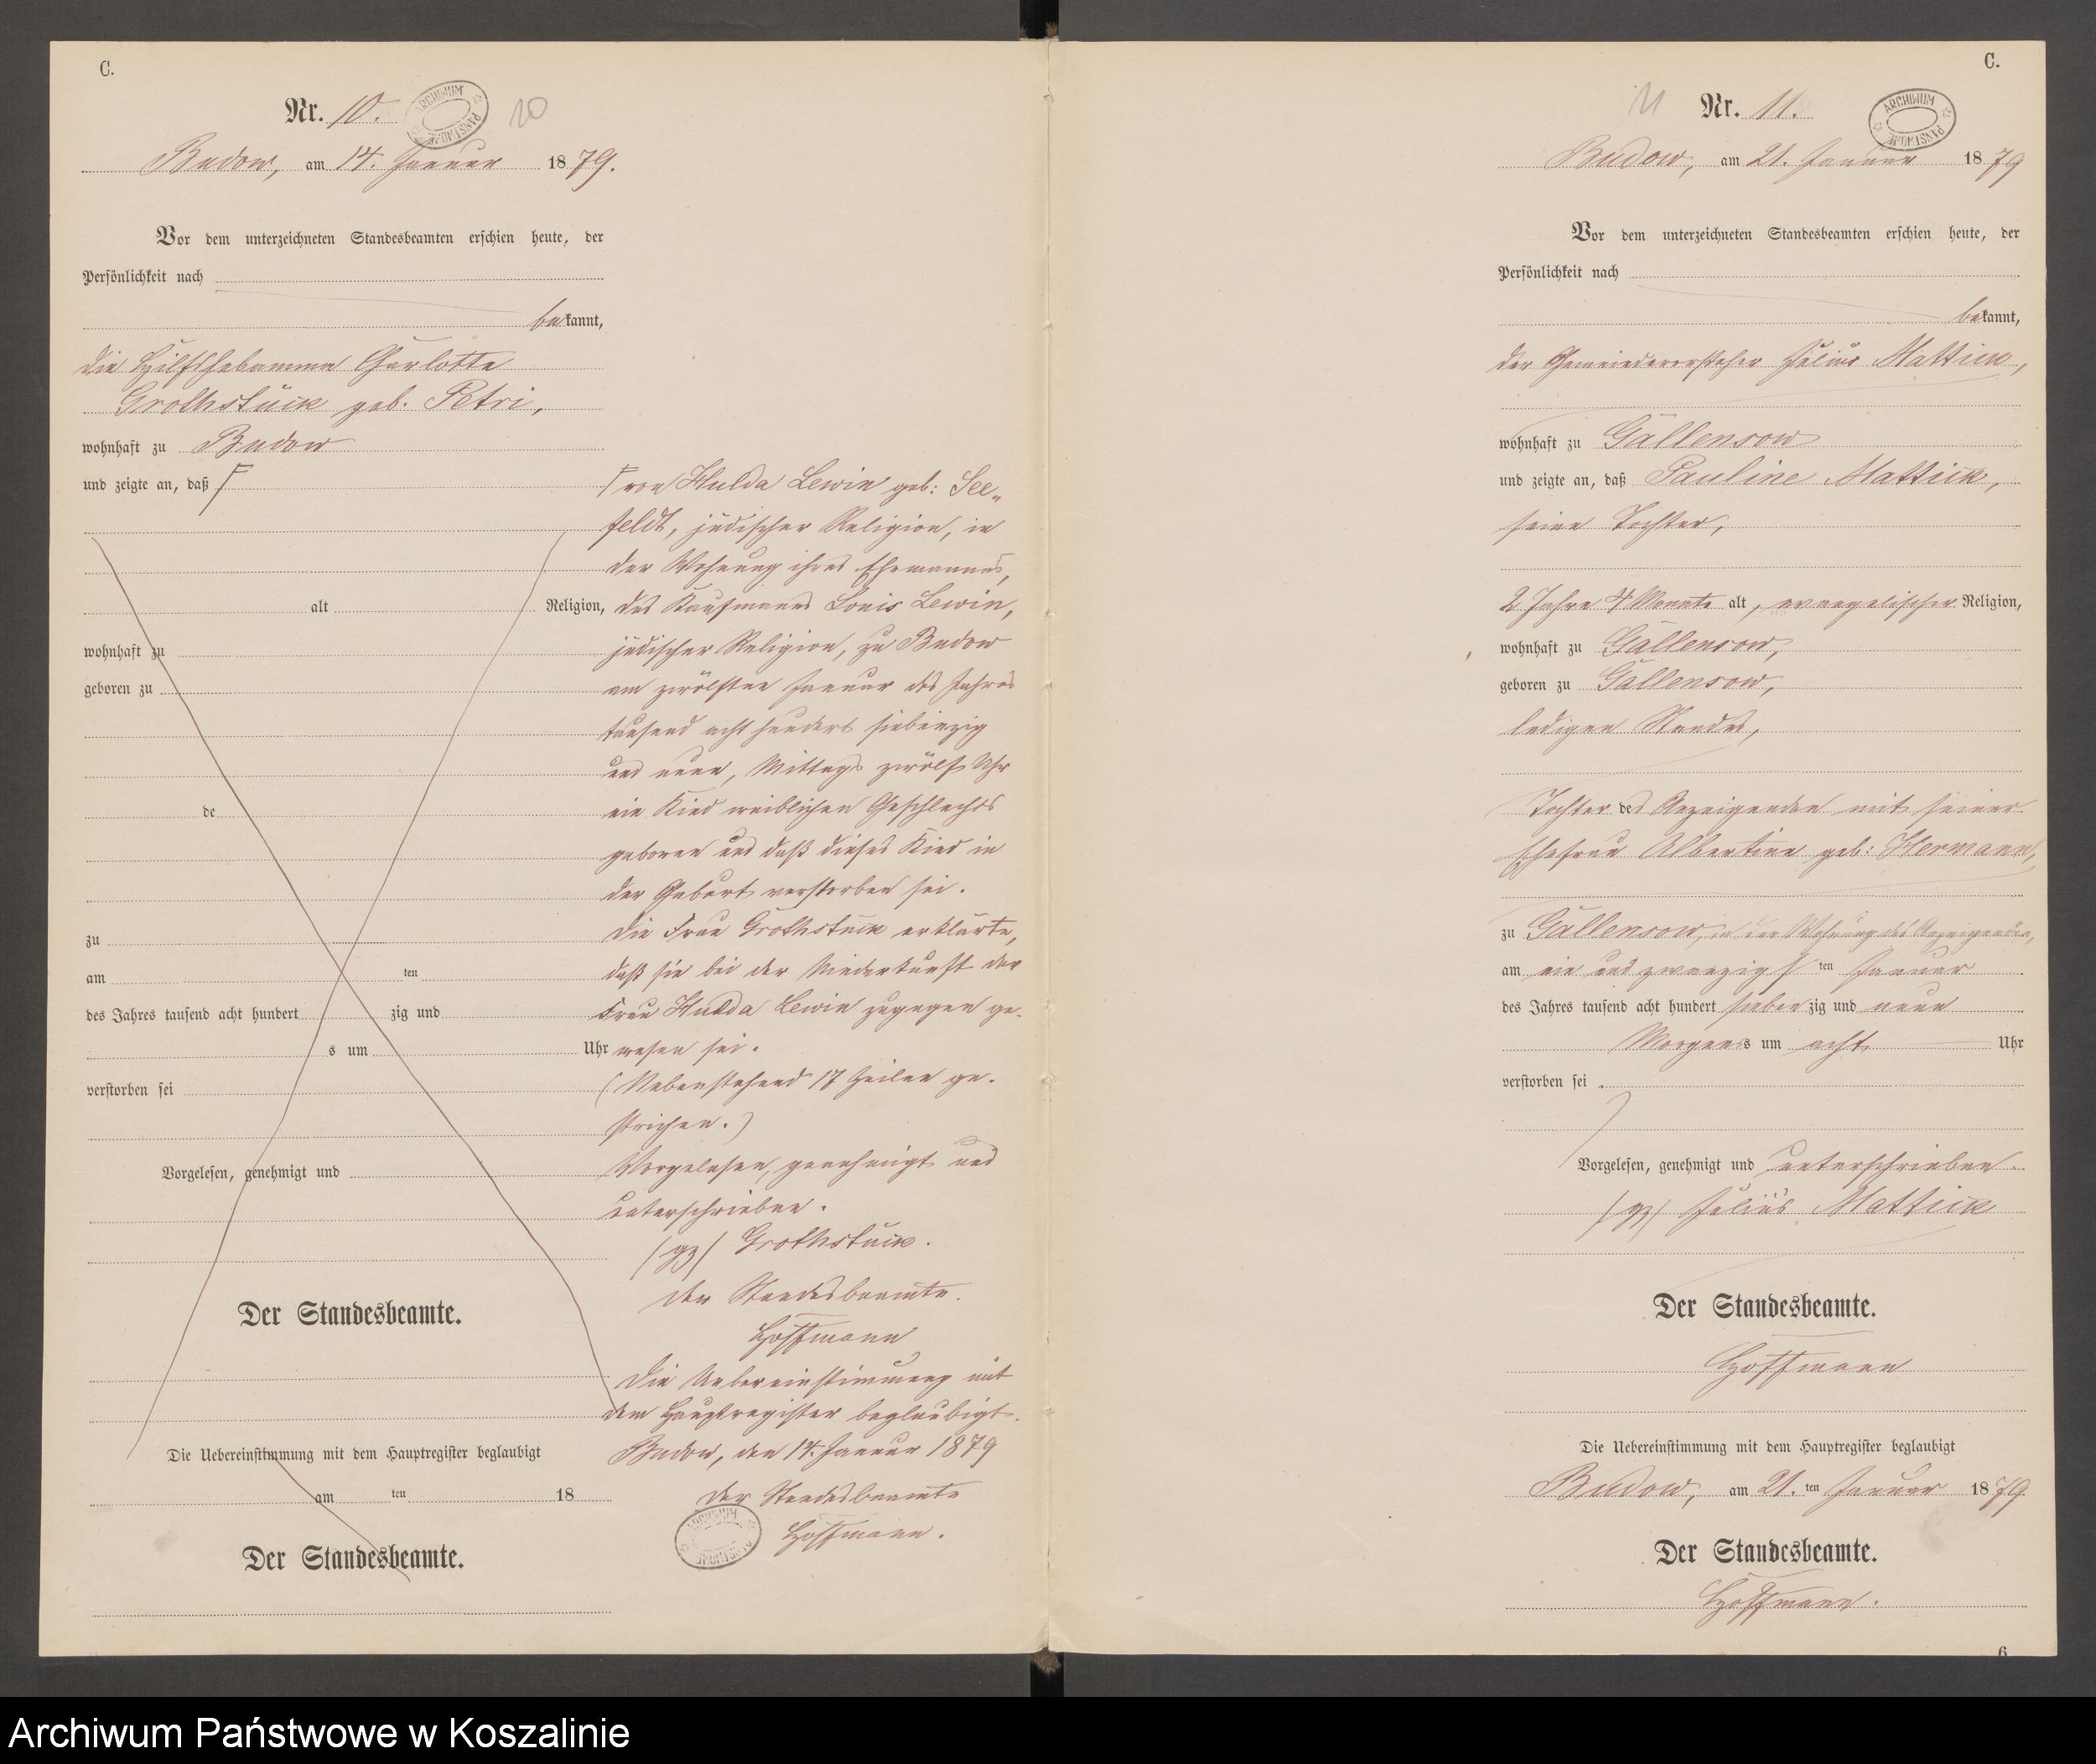 C.
Nr. 10.
ARCHIWUM PAŃSTWOWE
10
Budow, am 14. Januar 1879.
Vor dem unterzeichneten Standesbeamten erschien heute, der
Persönlichkeit nach
bekannt,
die Hilfshebamme Charlotte
Grothstück geb. Petri,
wohnhaft zu Budow
und zeigte an, daß
alt Religion,
wohnhaft zu
geboren zu
de
zu
am ten
des Jahres tausend acht hundert zig und
s um Uhr
verstorben sei
Vorgelesen, genehmigt und
Der Standesbeamte.
Die Uebereinstimmung mit dem Hauptregister beglaubigt
am ten 18
Der Standesbeamte.
von Hulda Lewin geb: See-
feldt, jüdischer Religion, in
der Wohnung ihres Ehemannes,
des Kaufmanns Louis Lewin,
jüdischer Religion, zu Budow
am zwölften Januar des Jahres
tausend acht hundert siebenzig
und neun, Mittags zwölf Uhr
ein Kind weiblichen Geschlechts
geboren und daß dieses Kind in
der Geburt verstorben sei.
Die Frau Grothstück erklärte,
daß sie bei der Niederkunft der
Frau Hulda Lewin zugegen ge-
wesen sei.
(Nebenstehend 17 Zeilen ge-
strichen.)
Vorgelesen, genehmigt und
unterschrieben.
(gz) Grothstück.
Der Standesbeamte.
Hoffmann
Die Uebereinstimmung mit
dem Hauptregister beglaubigt.
Budow, den 14. Januar 1879
Der Standesbeamte
Hoffmann.
ARCHIWUM PAŃSTWOWE
C.
11
Nr. 11.
ARCHIWUM PAŃSTWOWE
Budow, am 21. Januar 1879
Vor dem unterzeichneten Standesbeamten erschien heute, der
Persönlichkeit nach
bekannt,
der Gemeindevorsteher Julius Mattick,
wohnhaft zu Gallensow
und zeigte an, daß Pauline Mattick,
seine Tochter,
2 Jahre 4 Monate alt, evangelischer Religion,
wohnhaft zu Gallensow,
geboren zu Gallensow,
ledigen Standes,
Tochter des Anzeigenden mit seiner
Ehefrau Albertine geb: Hermann,
zu Gallensow, in der Wohnung des Anzeigenden,
am ein und zwanzigsten Januar
des Jahres tausend acht hundert siebenzig und neun
Morgens um acht Uhr
verstorben sei.
Vorgelesen, genehmigt und unterschrieben.
(gz) Julius Mattick
Der Standesbeamte.
Hoffmann
Die Uebereinstimmung mit dem Hauptregister beglaubigt
Budow, am 21. ten Januar 1879.
Der Standesbeamte.
Hoffmann.
6
Archiwum Państwowe w Koszalinie